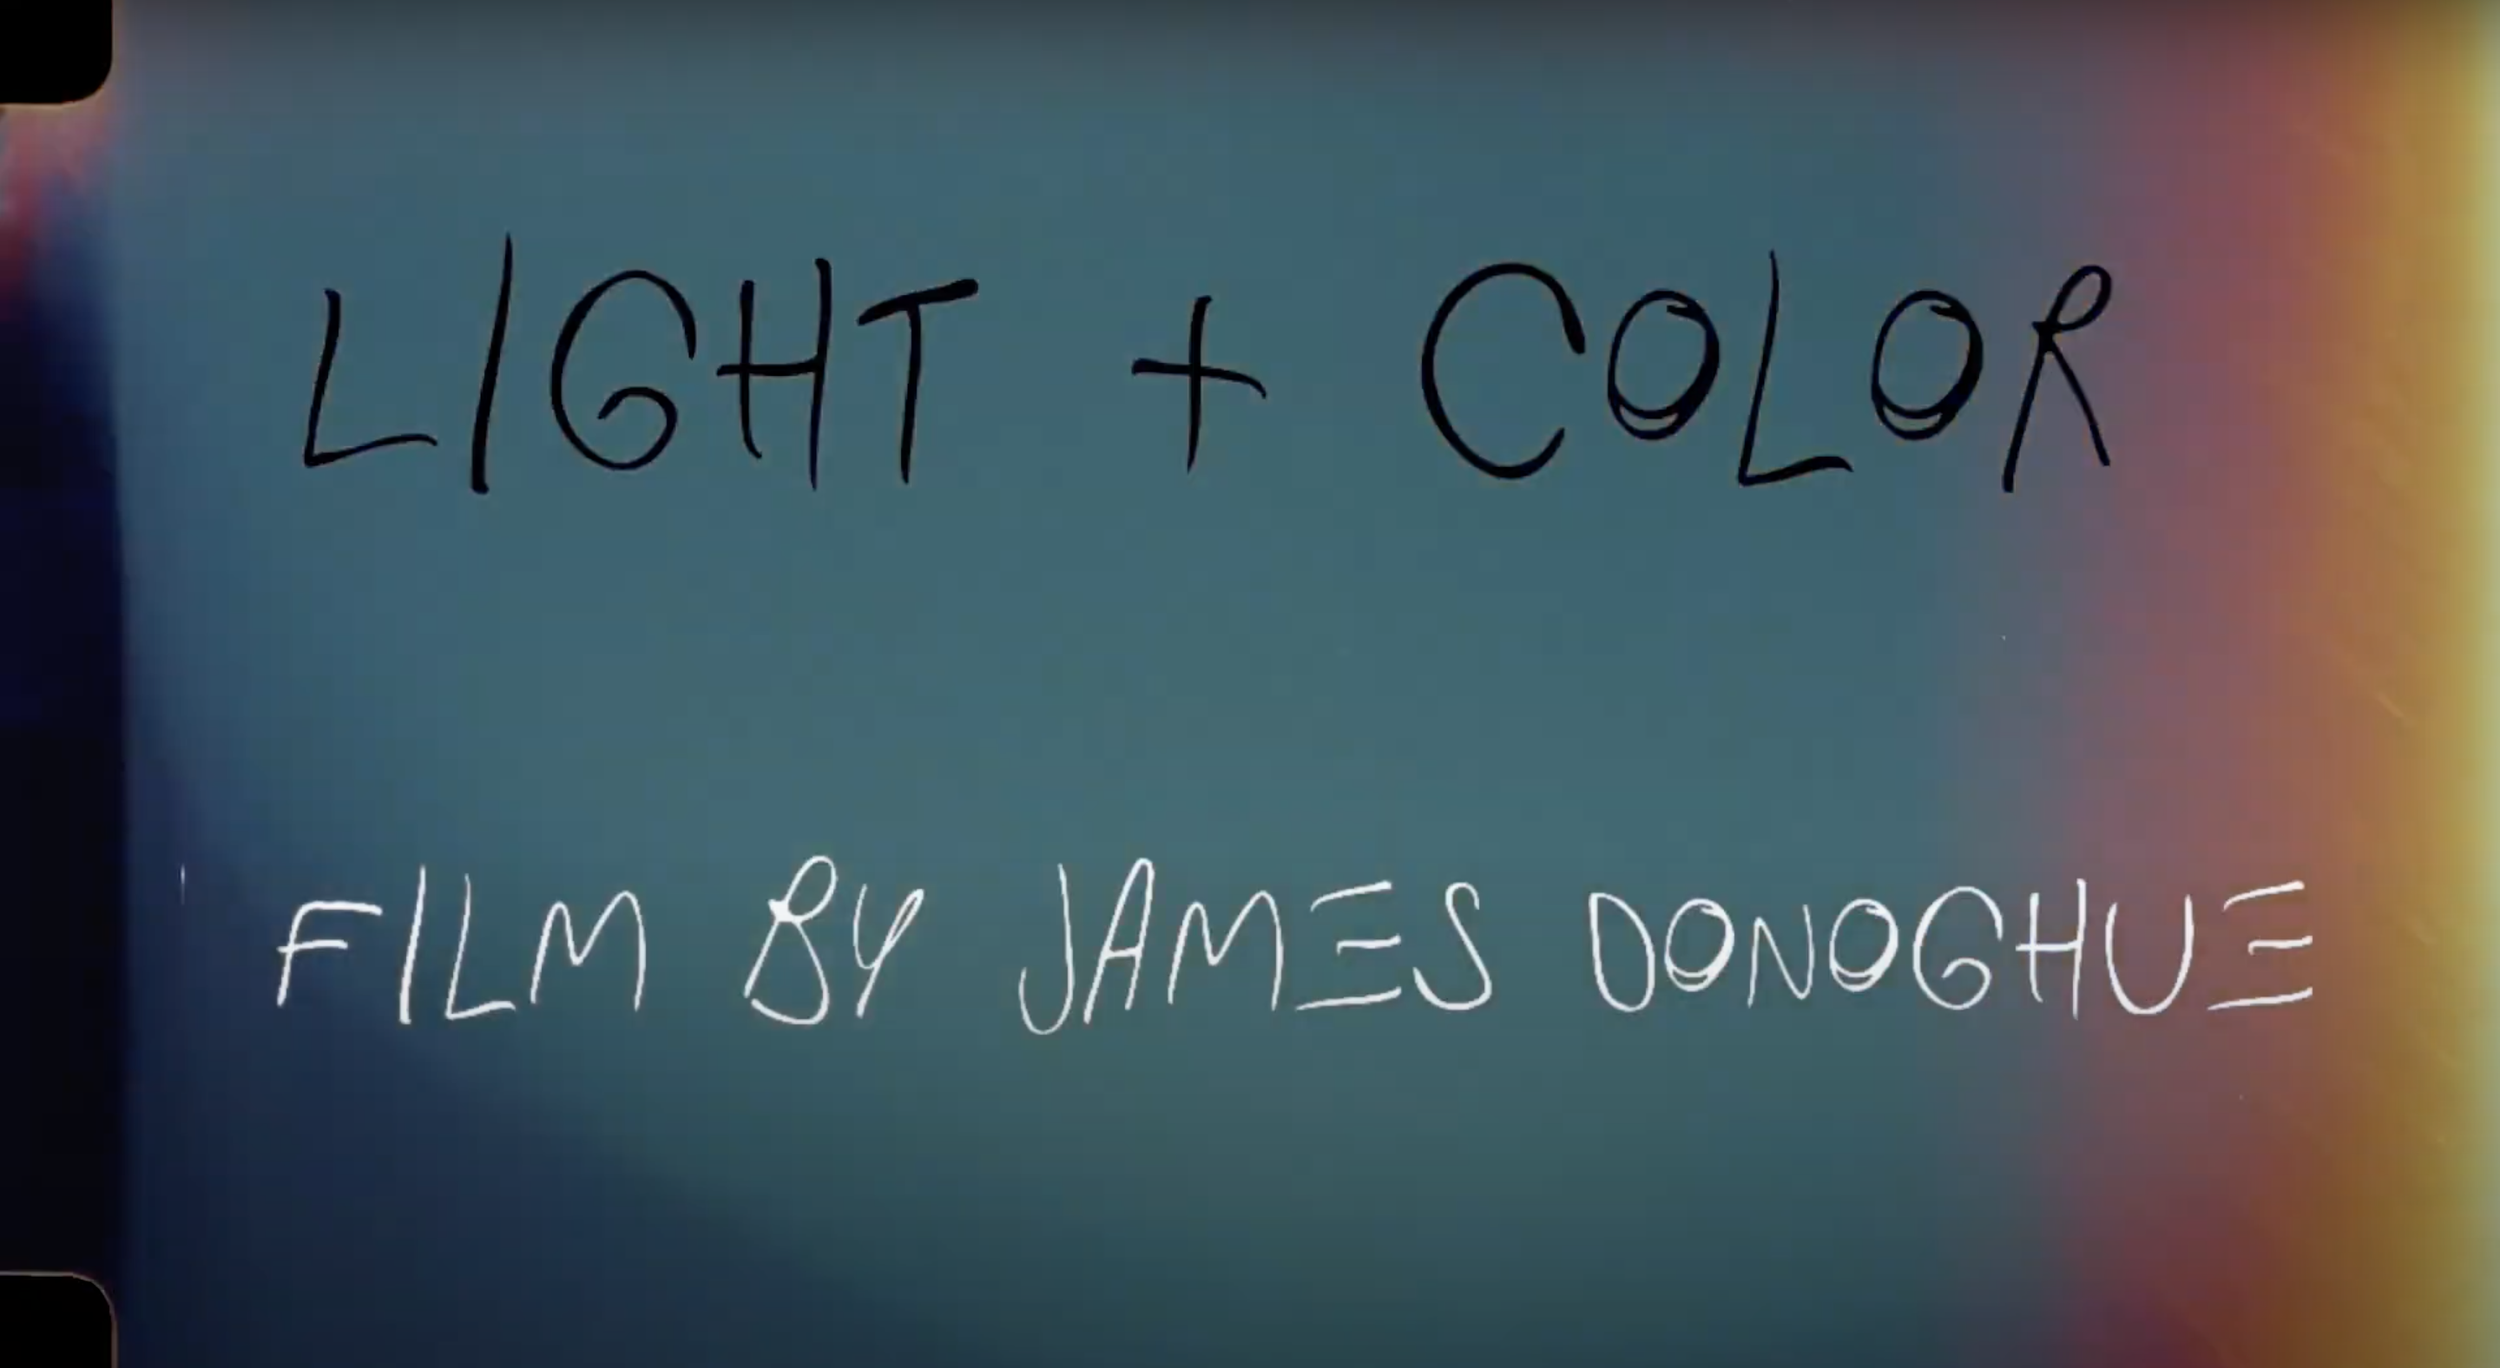 LIGHT + COLOR
FILM BY JAMES DONOGHUE